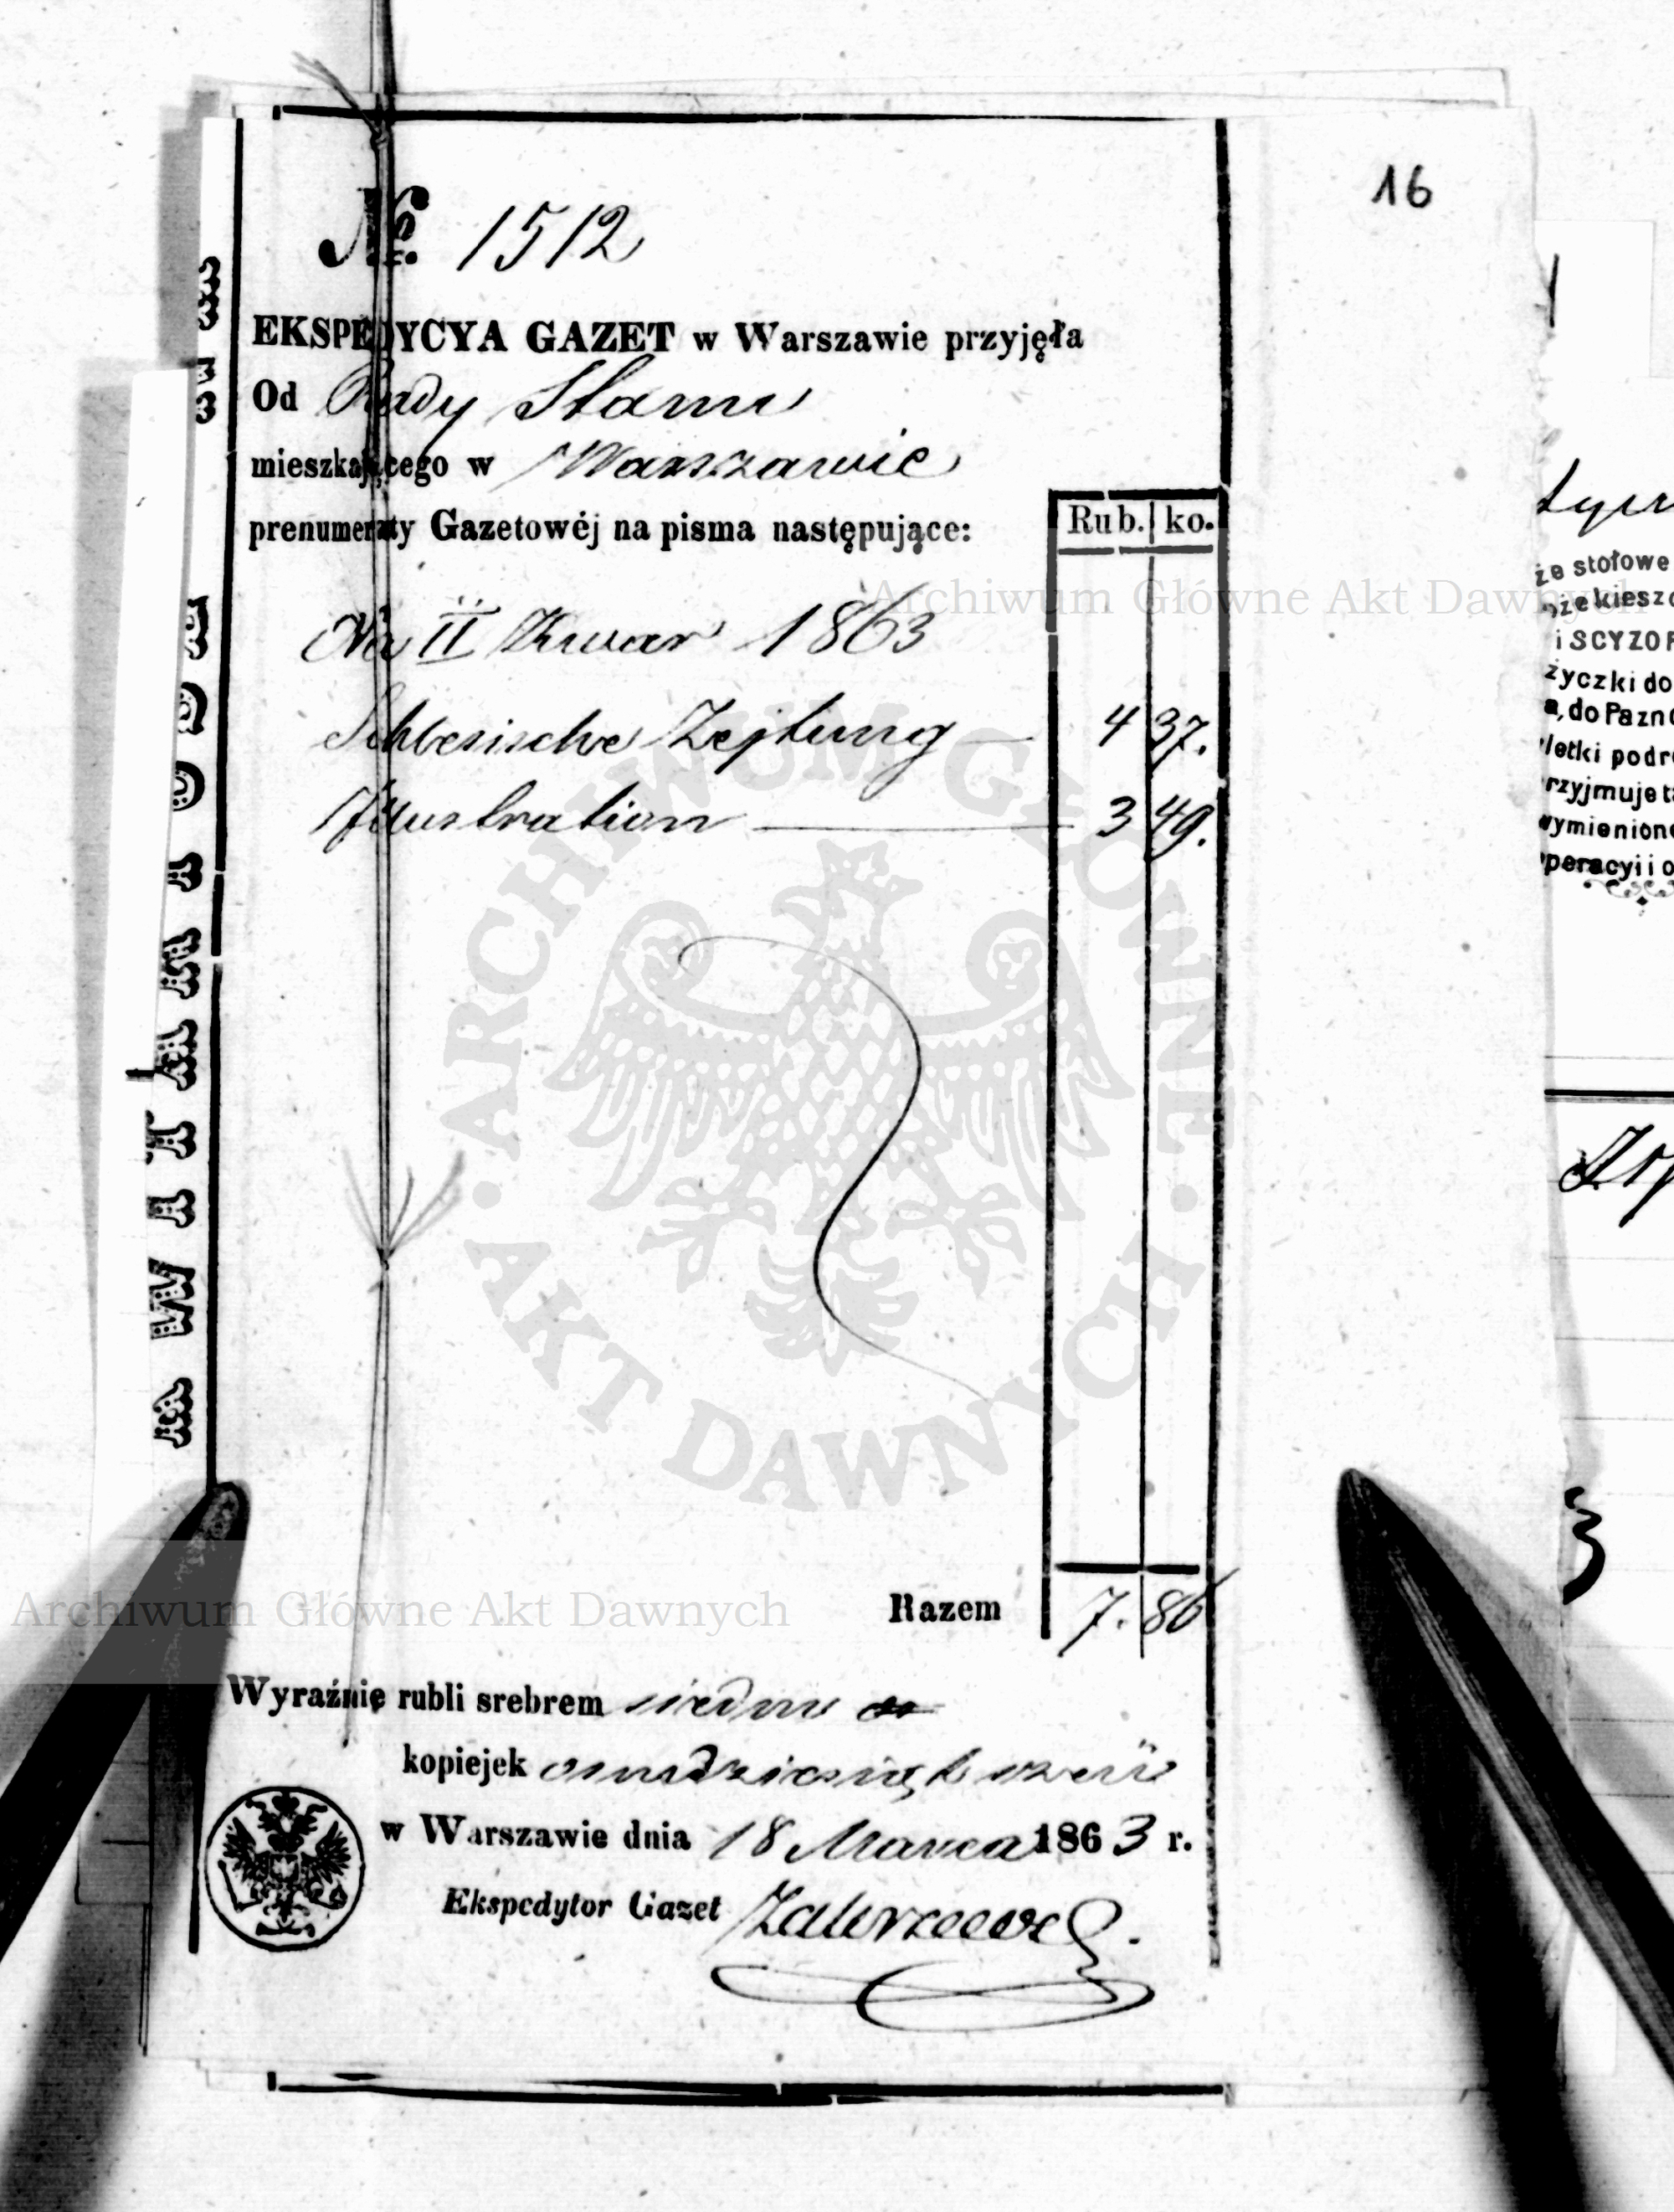 16
№ 1512
EKSPEDYCYA GAZET w Warszawie przyjęła
Od Rady Stanu
mieszkającego w Warszawie
prenumeraty Gazetowéj na pisma następujące:
Rub. ko.
Na II Kwar 1863
Schlesische Zejtung — 4 37.
Illustration — 3 49.
Razem 7. 86
Wyraźnie rubli srebrem siedm
kopiejek osmdziesiąt sześć
w Warszawie dnia 18 Marca 1863 r.
Ekspedytor Gazet
że stołowe
i SCYZOR
życzki do
a, do Pazno
letki podr
rzyjmuje ta
wymienione
peracyi i o
ARCHIWUM GŁÓWNE AKT DAWNYCH
Archiwum Główne Akt Dawnych
Archiwum Główne Akt Dawnych